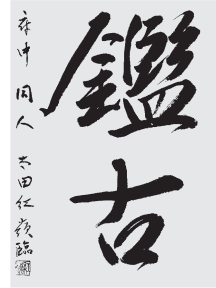 鑑古
府中 同人 太田紅嶺臨